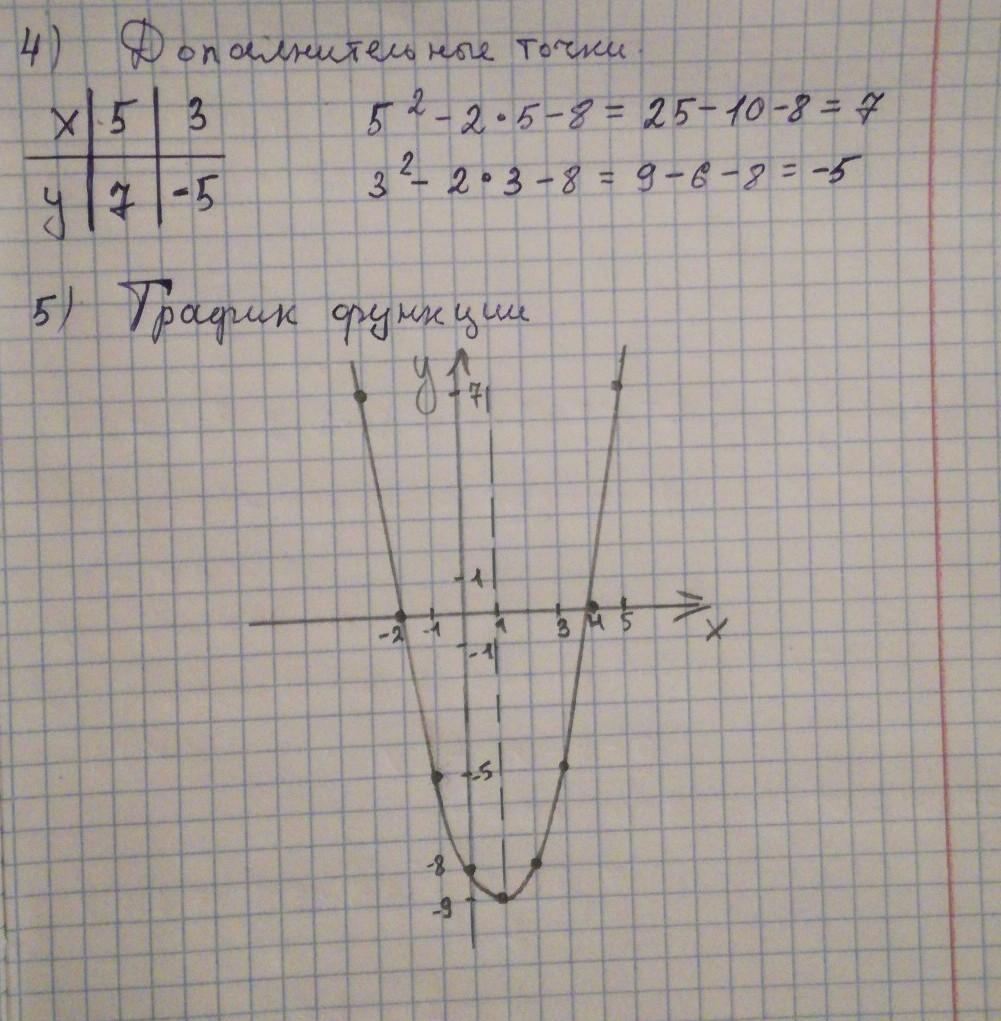 4) Дополнительные точки.
x | 5 | 3
y | 7 | -5
5² - 2·5 - 8 = 25 - 10 - 8 = 7
3² - 2·3 - 8 = 9 - 6 - 8 = -5
5) График функции
y
7
1
-2 -1 1 3 4 5
x
-1
-5
-8
-9